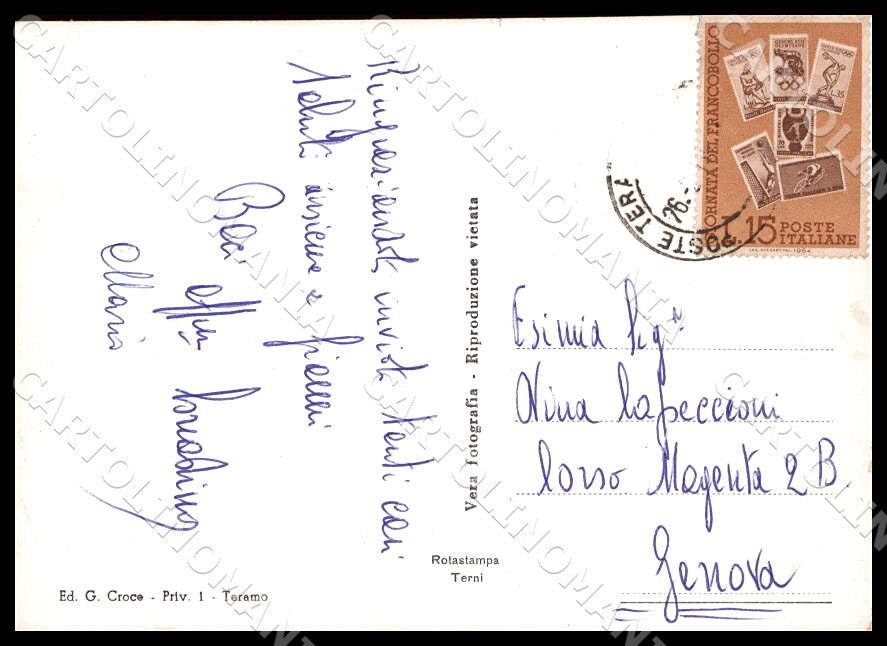 Ringraziandola invio tanti cari
saluti insieme a
Baci affmi
Mario
Vera fotografia - Riproduzione vietata
Rotastampa
Terni
Ed. G. Croce - Priv. 1 - Teramo
GIORNATA DEL FRANCOBOLLO
L.15 POSTE
ITALIANE
1964
POSTE TERA
26.
Esimia Sigra
Nina Capeccioni
Corso Magenta 2 B
Genova
CARTOLINOMANIA